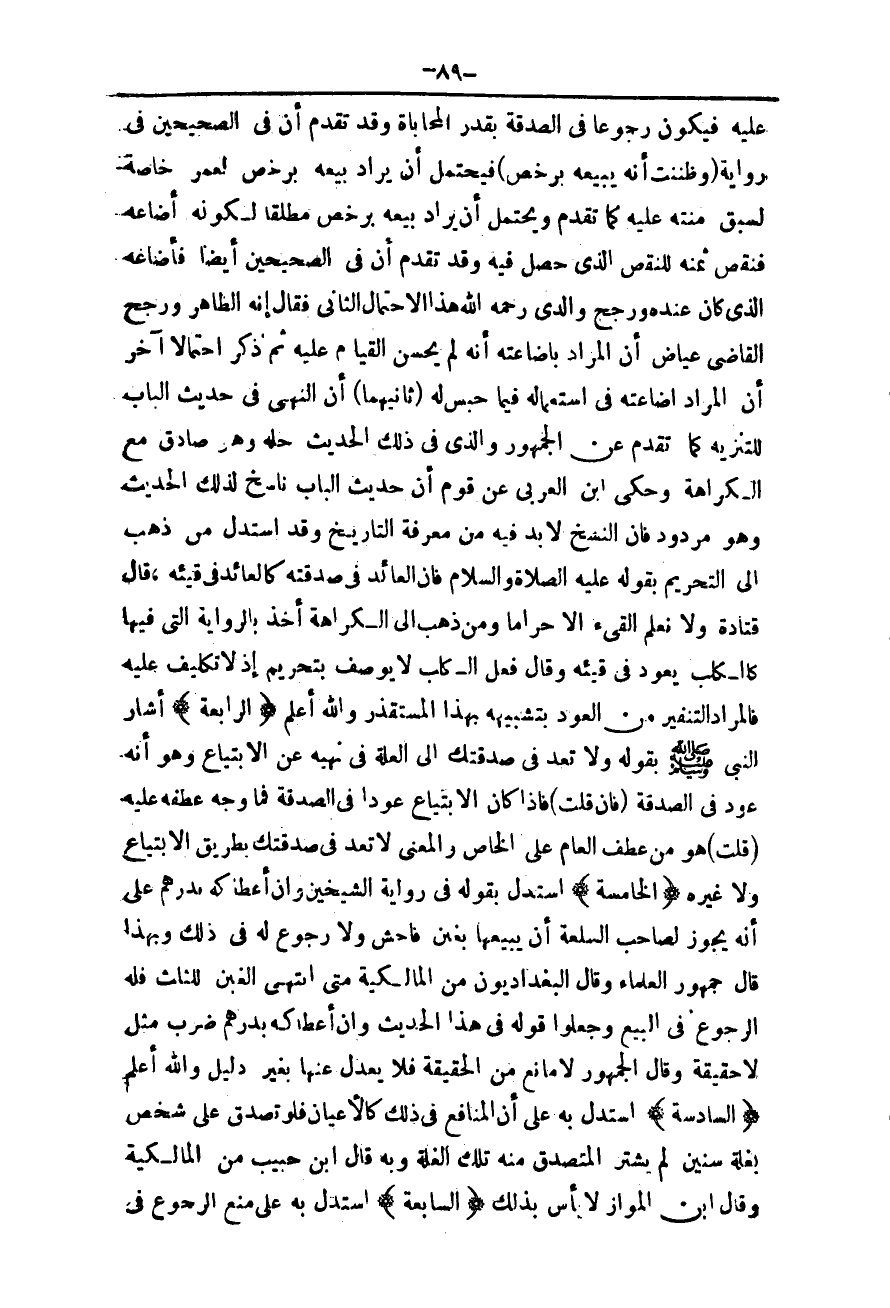 -٨٩-
عليه فيكون رجوعا فى الصدقة بقدر المحاباة وقد تقدم أن فى الصحيحين فى
رواية (وظننت أنه يبيعه برخص) فيحتمل أن يراد بيعه برخص لعمر خاصة
لسبق منته عليه كما تقدم ويحتمل أن يراد بيعه برخص مطلقا لكونه أضاعه
فنقص ثمنه للنقص الذى حصل فيه وقد تقدم أن فى الصحيحين أيضا فأضاعه
الذى كان عنده ورجح والدى رحمه الله هذا الاحتمال الثانى فقال إنه الظاهر ورجح
القاضى عياض أن المراد باضاعته أنه لم يحسن القيام عليه ثم ذكر احتمالا آخر
أن المراد اضاعته فى استعماله فيما حبس له (ثانيهما) أن النهى فى حديث الباب
للتنزيه كما تقدم عن الجمهور والذى فى ذلك الحديث حله وهو صادق مع
الكراهة وحكى ابن العربى عن قوم أن حديث الباب ناسخ لذلك الحديث
وهو مردود فان النسخ لابد فيه من معرفة التاريخ وقد استدل من ذهب
الى التحريم بقوله عليه الصلاة والسلام فان العائد فى صدقته كالعائد فى قيئه ،قال
قتادة ولا نعلم القىء الا حراما ومن ذهب الى الكراهة أخذ بالرواية التى فيها
كالكلب يعود فى قيئه وقال فعل الكلب لا يوصف بتحريم إذ لا تكليف عليه
فالمراد التنفير من العود بتشبيهه بهذا المستقذر والله أعلم ﴿ الرابعة ﴾ أشار
النبي ﷺ بقوله ولا تعد فى صدقتك الى العلة فى نهيه عن الابتياع وهو أنه
عود فى الصدقة (فان قلت) فاذا كان الابتياع عودا فى الصدقة فما وجه عطفه عليه
(قلت) هو من عطف العام على الخاص والمعنى لا تعد فى صدقتك بطريق الابتياع
ولا غيره ﴿ الخامسة ﴾ استدل بقوله فى رواية الشيخين وان أعطاكه بدرهم على
أنه يجوز لصاحب السلعة أن يبيعها بغبن فاحش ولا رجوع له فى ذلك وبهذا
قال جمهور العلماء وقال البغداديون من المالكية متى انتهى الغبن للثلث فله
الرجوع فى البيع وجعلوا قوله فى هذا الحديث وان أعطاكه بدرهم ضرب مثل
لا حقيقة وقال الجمهور لا مانع من الحقيقة فلا يعدل عنها بغير دليل والله أعلم
﴿ السادسة ﴾ استدل به على أن المنافع فى ذلك كالأعيان فلو تصدق على شخص
بغلة سنين لم يشتر المتصدق منه تلك الغلة وبه قال ابن حبيب من المالكية
وقال ابن المواز لا بأس بذلك ﴿ السابعة ﴾ استدل به على منع الرجوع فى